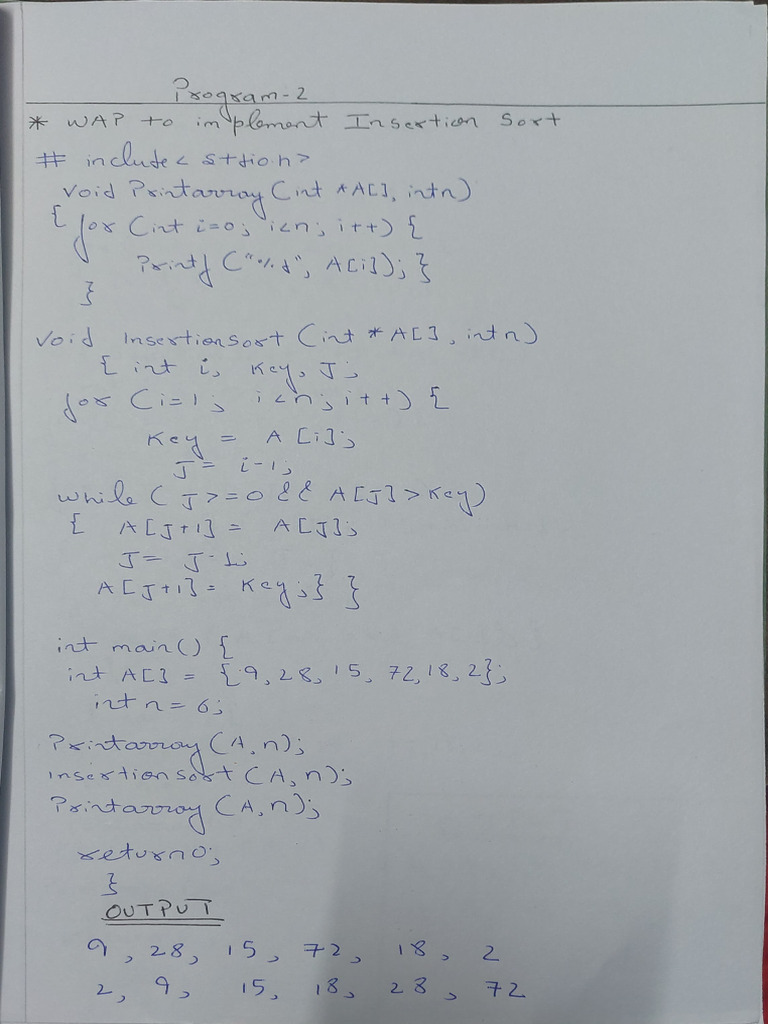 Program-2
* WAP to implement Insertion Sort
# include < stdio.h>
void Printarray (int *A[], int n)
{ for (int i=0; i<n; i++) {
Printf ("%d", A[i]); }
}
void Insertionsort (int * A[], int n)
{ int i, Key, J;
for (i=1; i<n; i++) {
Key = A [i];
J = i-1;
while ( J >= 0 && A[J] > Key)
{ A[J+1] = A[J];
J = J-1;
A[J+1] = Key; } }
int main() {
int A[] = {9, 28, 15, 72, 18, 2};
int n = 6;
Printarray (A, n);
insertion sort (A, n);
Printarray (A, n);
return 0;
}
OUTPUT
9, 28, 15, 72, 18, 2
2, 9, 15, 18, 28, 72